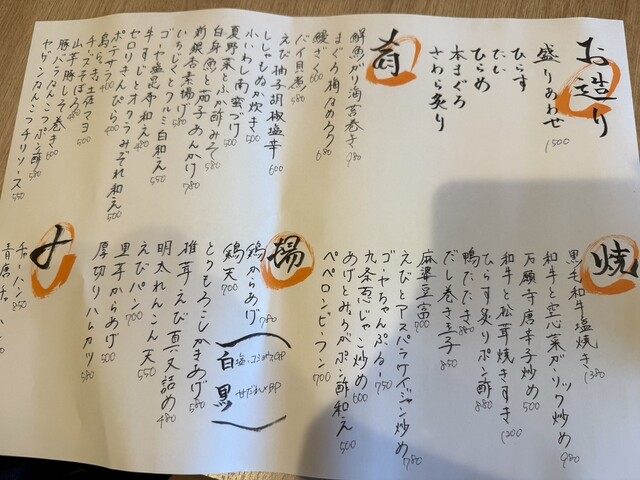 お造り
盛りあわせ 1500
ひらす
たい
ひらめ
本まぐろ
さわら炙り
肴
鮮魚ガリ海苔巻き 780
まぐろ梅なめろう 680
鰻ざく 600
バイ貝煮 580
えび柚子胡椒塩辛 600
ししゃもぬか炊き 500
小いわし南蛮づけ 500
夏野菜とふか酢みそ 580
白身魚と茄子あんかけ 780
新銀杏素揚げ 580
いちじくとクルミ白和え 550
ゴーヤ塩昆布和え 480
牛すじとオクラみぞれ和え 500
セロリきんぴら 400
ポテサラ 400
鳥
チーズ
山芋豚しそ巻き 600
豚バラなんこつポン酢 580
ヤゲンなんこつチリソース 550
焼
黒毛和牛塩焼き 1380
和牛と空心菜ガーリック炒め 980
万願寺唐辛子炒め 500
和牛と松茸焼きすき 1200
ひらす炙りポン酢 880
鴨たたき 880
だし巻き玉子 850
麻婆豆富 700
えびとアスパラケイジャン炒め 780
ゴーヤちゃんぷるー 750
九条葱じゃこ炒め 600
あげとみょうがポン酢和え 500
ペペロンビーフン 700
揚
鶏からあげ 780
鶏天 700
白
黒
とうもろこしかきあげ 580
椎茸えび真丈詰め 480
明太れんこん天 550
えびパン 700
里芋からあげ 500
厚切りハムカツ 580
〆
チャーハン 850
青唐チャーハン